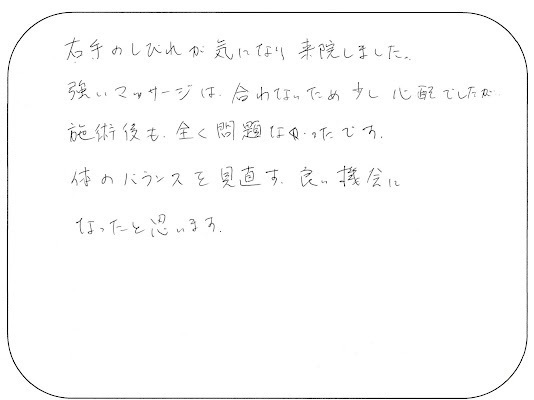 右手のしびれが気になり来院しました。
強いマッサージは、合わないため少し心配でしたが
施術後も、全く問題なかったです。
体のバランスを見直す、良い機会に
なったと思います。